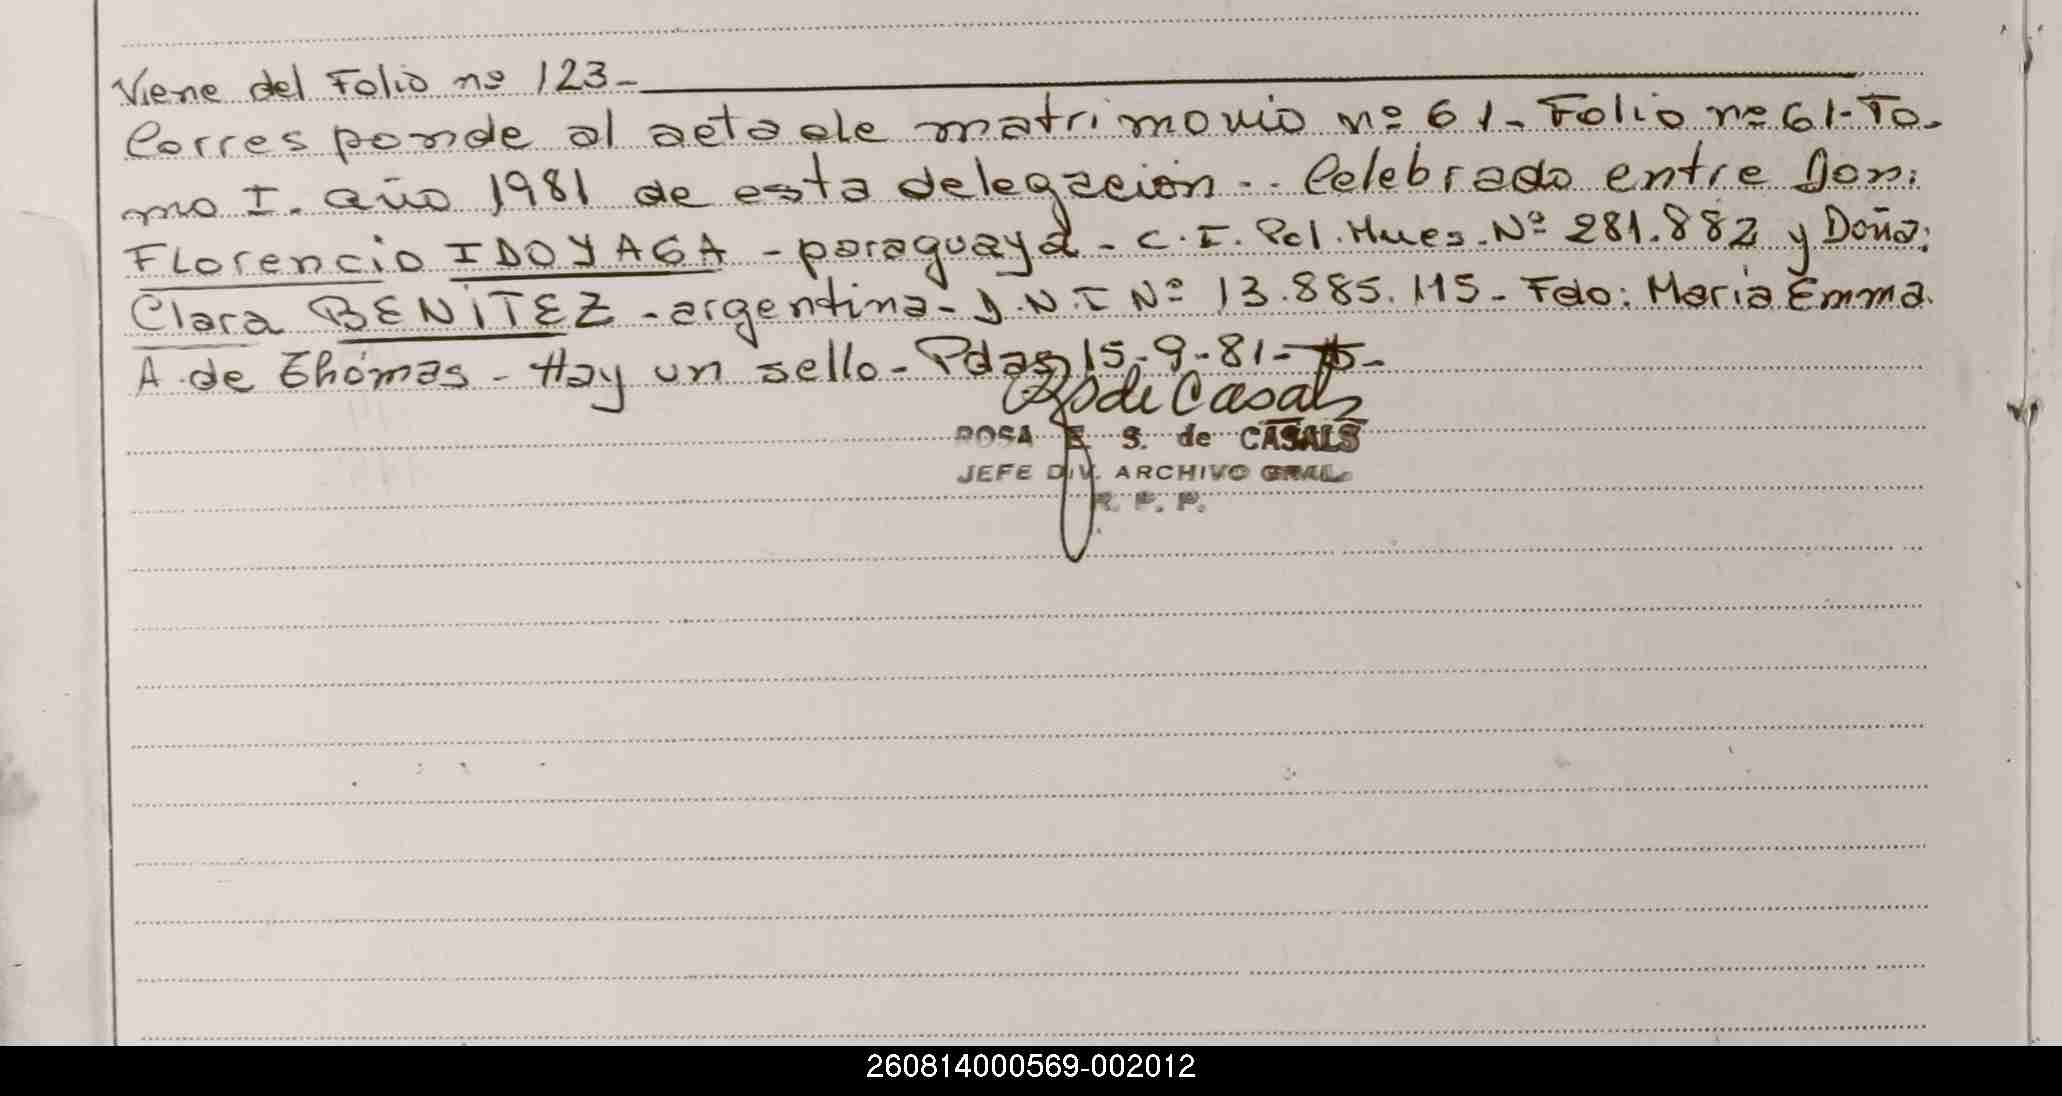 Viene del Folio nº 123-
Corresponde al acta de matrimonio nº 61- Folio nº 61- To-
mo I. año 1981 de esta delegación.. Celebrado entre Don:
Florencio IDOYAGA - paraguaya - C. I. Pol. Mnes. Nº 281.882 y Doña:
Clara BENÍTEZ - argentina - D.N.I Nº 13.885.115- Fdo: María Emma
A. de Thomas - Hay un sello - Pdas, 15-9-81-
ROSA E. S. de CASALS
JEFE DIV. ARCHIVO GRAL.
R. P. P.
260814000569-002012